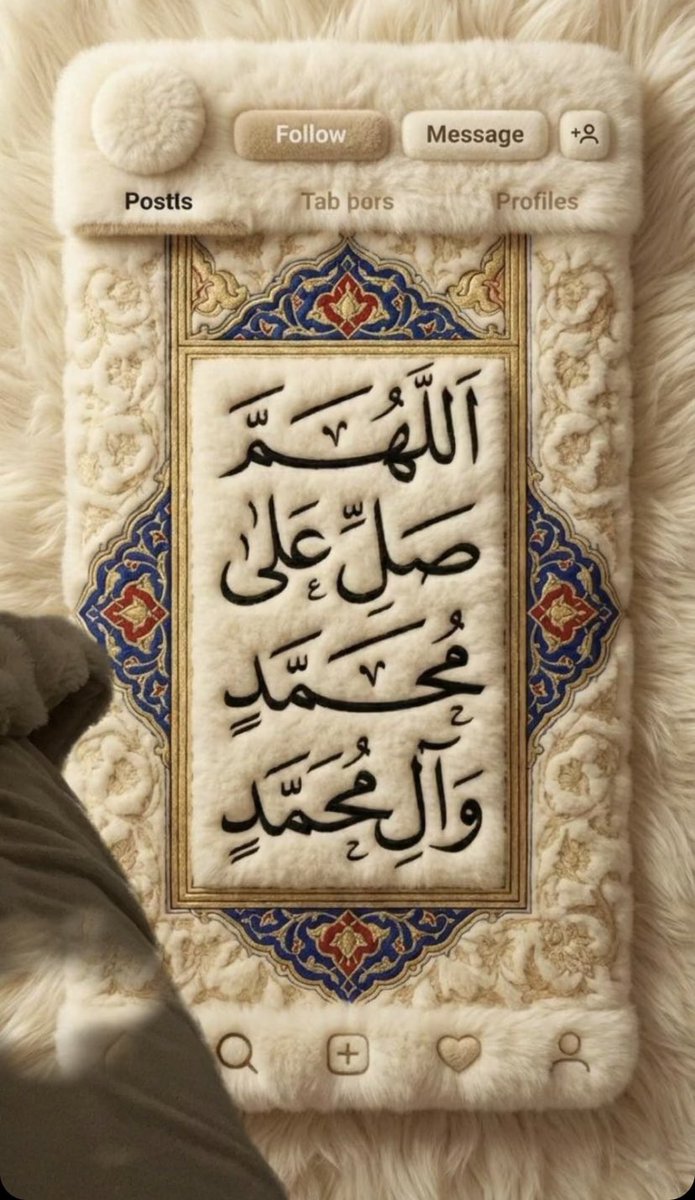 Follow
Message
Postls
Tab bors
Profiles
اَللّٰهُمَّ
صَلِّ عَلىٰ
مُحَمَّدٍ
وَآلِ مُحَمَّدٍ